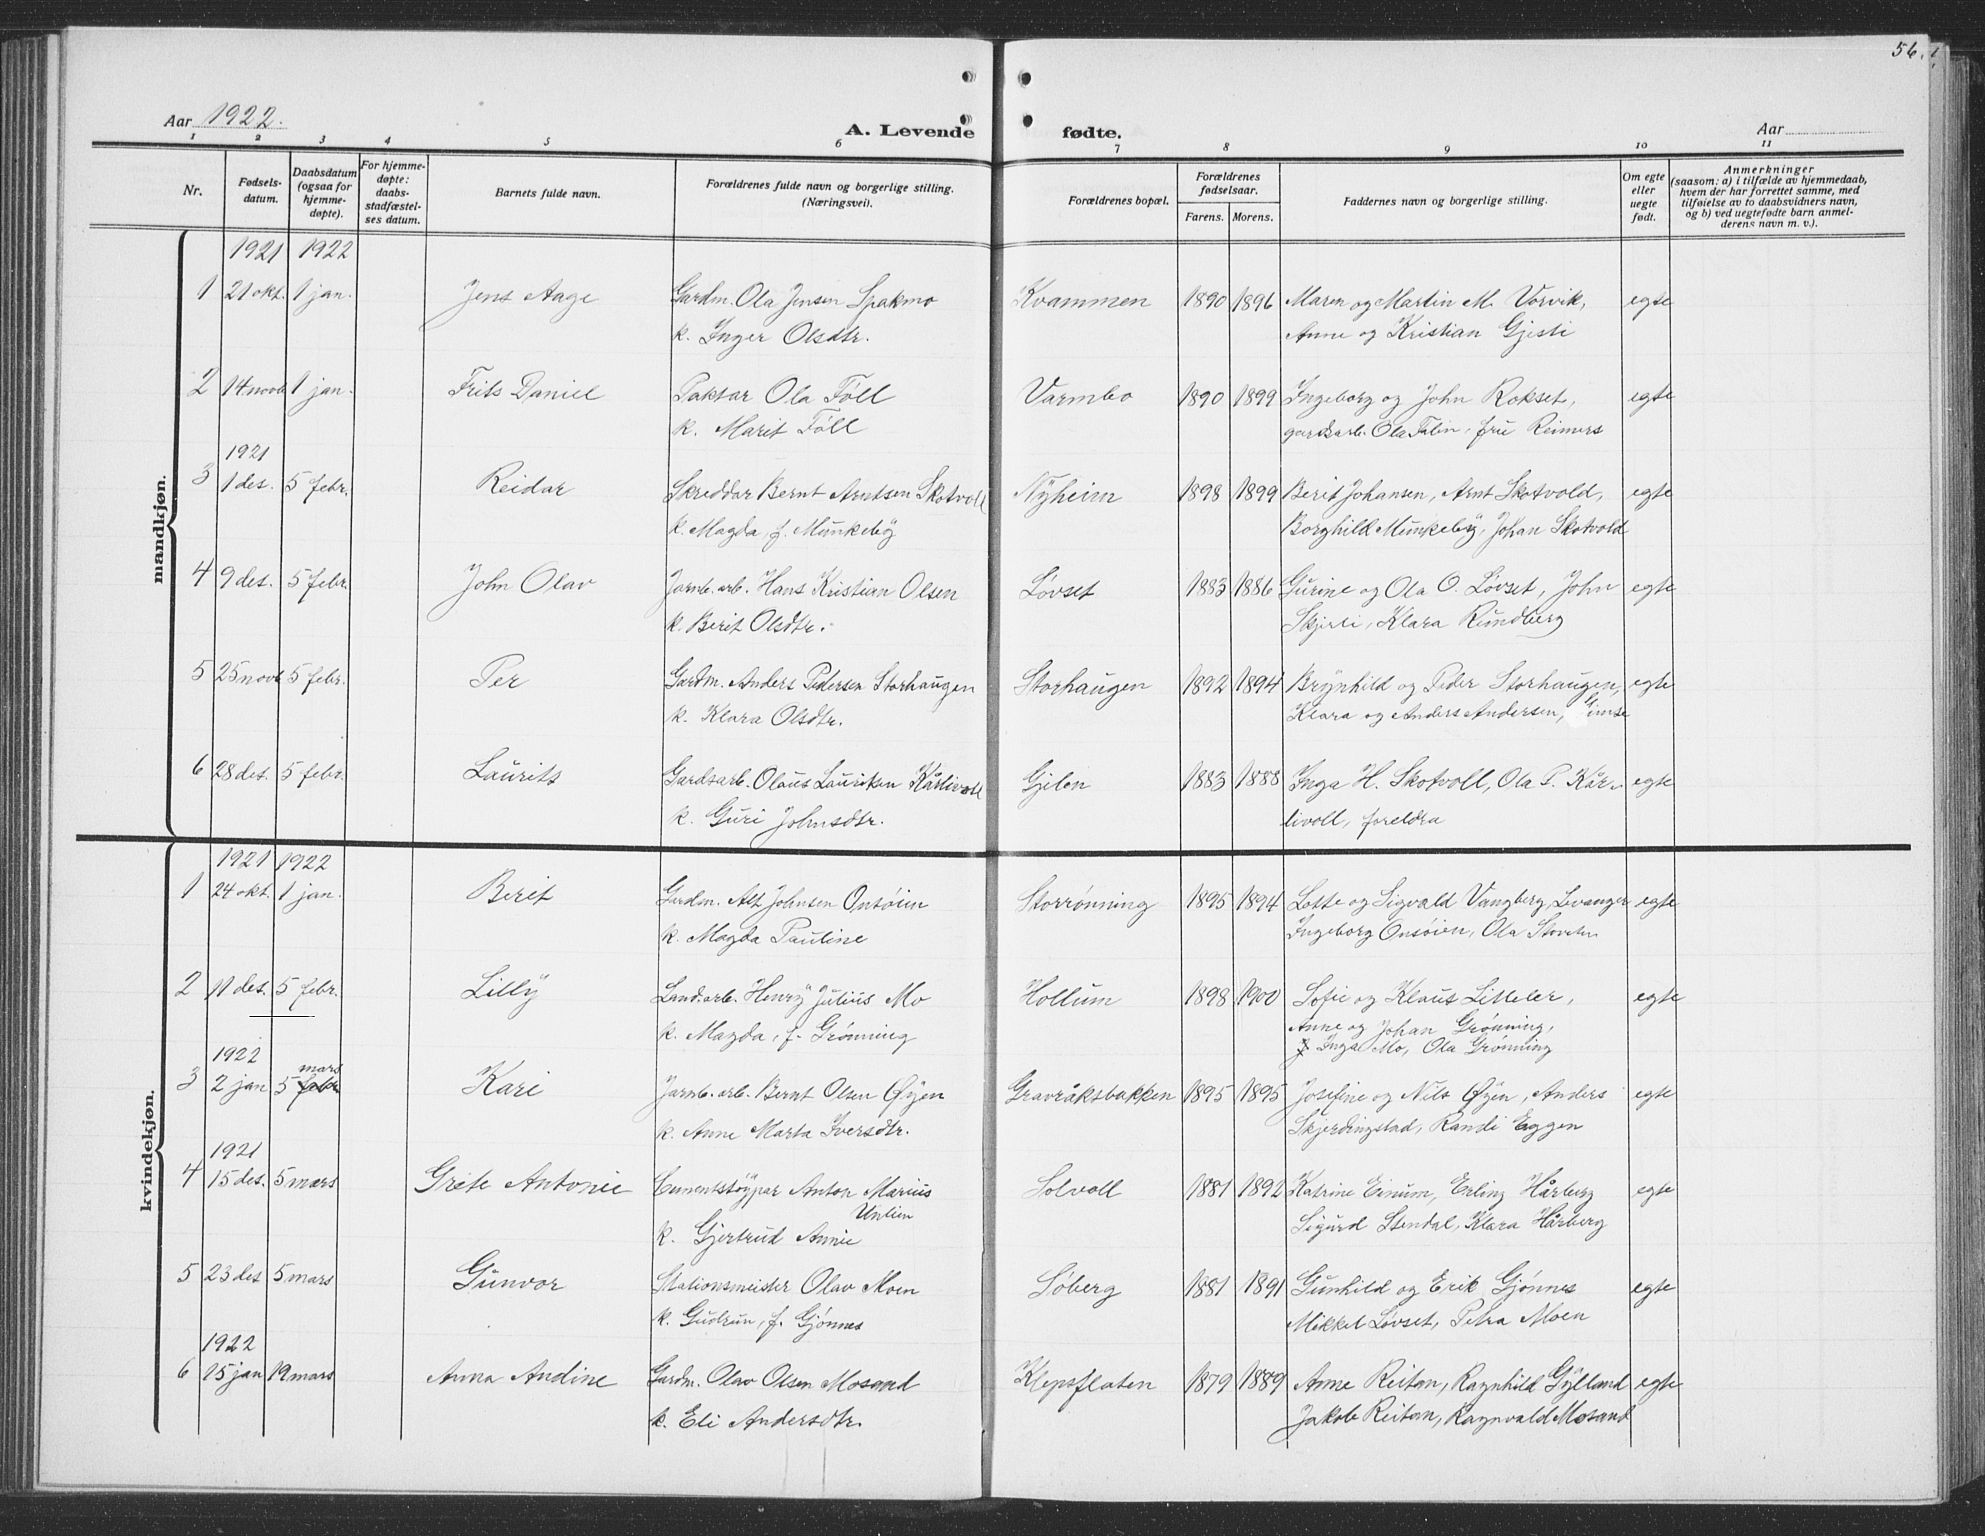 56.
Aar 1922.
A. Levende fødte.
Aar
1 2 3 4 5 6 7 8 9 10 11
Nr.
Fødsels-
datum.
Daabsdatum
(ogsaa for
hjemme-
døpte).
For hjemme-
døpte:
daabs-
stadfæstel-
ses datum.
Barnets fulde navn.
Forældrenes fulde navn og borgerlige stilling.
(Næringsvei).
Forældrenes bopæl.
Forældrenes
fødselsaar.
Farens. Morens.
Faddernes navn og borgerlige stilling.
Om egte
eller
uegte
født.
Anmerkninger
(saasom: a) i tilfælde av hjemmedaab,
hvem der har forrettet samme, med
tilføielse av to daabsvidners navn,
og b) ved uegtefødte barn anmel-
derens navn m. v.).
mandkjøn.
1921 1922
1 21 okt. 1 jan. Jens Aage Gardm. Ola Jensen Spakmo Kvammen 1890 1896 Maren og Martin M. Vorvik, egte
k. Inger Olsdtr. Anne og Kristian Gjesti
2 14 novb 1 jan. Frits Daniel Paktar Ola Føll Varmbo 1890 1899 Ingeborg og John Rokset, egte
k. Marit Føll gardsarb. Ola Folin, fru Reimers
1921
3 1 des. 5 febr. Reidar Skreddar Bernt Arntsen Skotvoll Nyheim 1898 1899 Berit Johansen, Arnt Skotvold, egte
k. Magda, f. Munkeby Borghild Munkeby, Johan Skotvold
4 9 des. 5 febr. John Olav Jarnb. arb. Hans Kristian Olsen Løvset 1883 1886 Gurine og Ola O. Løvset, John egte
k. Berit Olsdtr. Skjerli, Klara Rundberg
5 25 novb 5 febr. Per Gardm. Anders Pedersen Storhaugen Storhaugen 1892 1894 Brynhild og Peder Storhaugen, egte
k. Klara Olsdtr. Klara og Anders Andersen, Gimse
6 28 des. 5 febr. Laurits Gardsarb. Olaus Lauritsen Kårlivoll Gjelen 1883 1888 Inga H. Skotvoll, Ola P. Kår- egte
k. Guri Johnsdtr. livoll, foreldra
kvindekjøn.
1921 1922
1 24 okt. 1 jan. Berit Gardm. Alf Johnsen Onsøien Storrønning 1895 1894 Lotte og Sigvald Vangberg, Levanger egte
k. Magda Pauline Ingeborg Onsøien, Ola Stoveten
2 11 des. 5 febr. Lilly Land.arb. Henry Julius Mo Hollum 1898 1900 Sofie og Klaus Litleler, egte
k. Magda, f. Grønning Anne og Johan Grønning,
Inga Mo, Ola Grønning
1922 mars
3 2 jan 5 febr Kari Jarnb. arb. Bernt Olsen Øyen Gravråksbakken 1895 1895 Josefine og Nils Øyen, Anders egte
k. Anne Marta Iversdtr. Skjerdingstad, Randi Eggen
1921
4 15 des. 5 mars Grete Antonie Cementstøypar Anton Marius Solvoll 1881 1892 Katrine Einum, Erling Hårberg egte
Unlien
k. Gjertrud Annie Sigurd Stendal, Klara Hårberg
5 23 des 5 mars Gunvor Stationsmeister Olav Moen Søberg 1881 1891 Gunhild og Erik Gjønnes egte
k. Gudrun, f. Gjønnes Mikkel Løvset, Petra Moen
1922
6 15 jan 19 mars Anna Andine Gardm. Olav Olsen Mosand Klepsflaten 1879 1889 Anne Reitan, Ragnhild Gylland egte
k. Eli Andersdtr. Jakob Reitan, Ragnvald Mosand